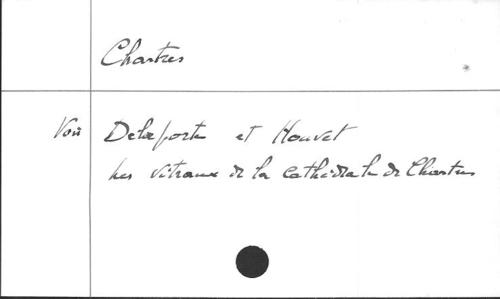 Chartres
Voir Delaporte et Houvet
Les vitraux de la cathédrale de Chartres